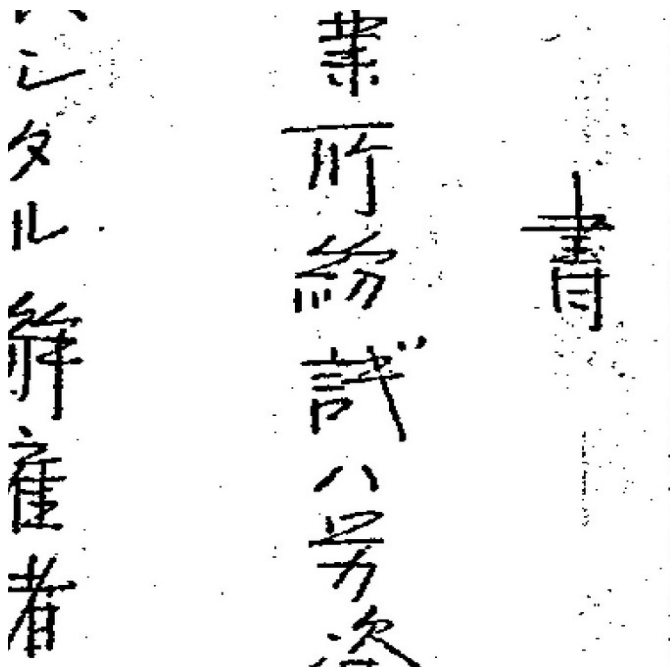 書
業所紛議ハ労
シタル解雇者